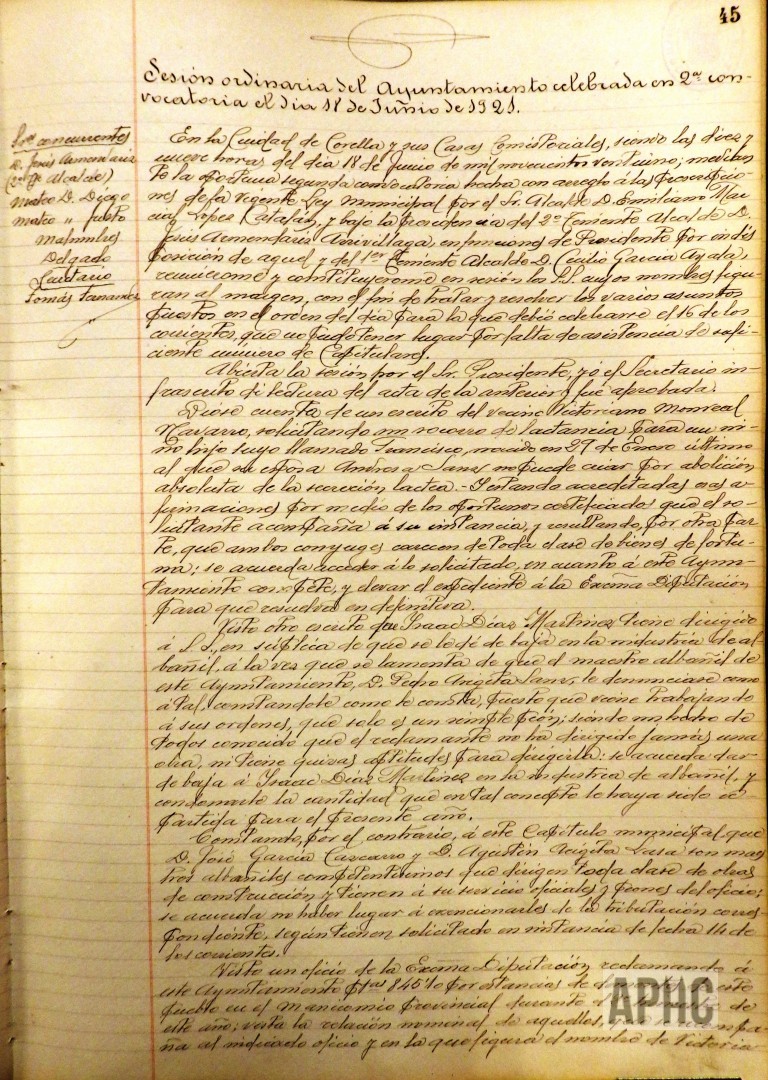 45
Sesión ordinaria del Ayuntamiento celebrada en 2ª con-
vocatoria el dia 18 de Junio de 1921.
Sres concurrentes
D. Jesús Armendariz
(2º Tte Alcalde)
Mateo D. Diego
Mateo " Justo
Malumbres
Delgado
Lautario
Tomás Fernandez
En la Ciudad de Corella y sus Casas Consistoriales, siendo las diez y
nueve horas del dia 18 de Junio de mil novecientos veintiuno; median
te la oportuna segunda convocatoria hecha con arreglo á las prescripcio
nes de la vigente Ley Municipal por el Sr. Alcalde D. Emiliano Mar
cial Lopez Catalán, y bajo la presidencia del 2º Teniente Alcalde D.
Jesús Armendariz Arrivillaga, en funciones de Presidente por indis
posición de aquel y del 1er Teniente Alcalde D. Cecilio Garcia Ayala,
reunieronse y constituyeronse en sesión los S.S. cuyos nombres figu-
ran al margen, con el fin de tratar y resolver los varios asuntos
puestos en el orden del dia para la que debió celebrarse el 16 de los
corrientes, que no pudo tener lugar por falta de asistencia de sufi-
ciente número de Capitulares.
Abierta la sesión por el Sr. Presidente, yo el Secretario in-
frascrito dí lectura del acta de la anterior y fué aprobada.
Diose cuenta de un escrito del vecino Victoriano Monreal
Navarro, solicitando un socorro de lactancia para un ni-
ño hijo suyo llamado Francisco, nacido en 27 de Enero último
al que su esposa Andresa Sanz no puede criar por abolición
absoluta de la secreción lactea.- Y estando acreditadas esas a-
firmaciones por medio de los oportunos certificados que el so-
licitante acompaña á su instancia, y resultando, por otra par-
te, que ambos conyuges carecen de toda clase de bienes de fortu-
na; se acuerda acceder á lo solicitado, en cuanto á este Ayun-
tamiento compete, y elevar el expediente á la Excma Diputación
para que resuelva en definitiva.
Visto otro escrito que Isaac Díaz Martinez tiene dirigido
á S.S., en súplica de que se le dé de baja en la industria de al-
bañil, á la vez que se lamenta de que el maestro albañil de
este Ayuntamiento, D. Pedro Argota Sanz, le denunciase como
á tal, constandole como le consta, puesto que viene trabajando
á sus ordenes, que solo es un simple peón; siendo un hecho de
todos conocido que el reclamante no ha dirigido jamás una
obra, ni tiene quizas aptitudes para dirigirla: se acuerda dar
de baja á Isaac Díaz Martinez en la industria de albañil, y
condonarle la cantidad que en tal concepto le haya sido re-
partida para el presente año.
Constando, por el contrario, á este Capitulo municipal que
D. José Garcia Cascarro y D. Agustín Argota Lasa son maes
tros albañiles competentisimos que dirigen toda clase de obras
de construcción y tienen á su servicio oficiales y peones del oficio;
se acuerda no haber lugar á exencionarles de la tributación corres-
pondiente, según tienen solicitado en instancia de fecha 14 de
los corrientes.
Visto un oficio de la Excma Diputación reclamando á
este Ayuntamiento ptas 845'10 por estancias de de este
pueblo en el Manicomio Provincial durante el de
este año; vista la relación nominal de aquellos, que acompa-
ña al indicado oficio y en la que figura el nombre de Victoria
APHC